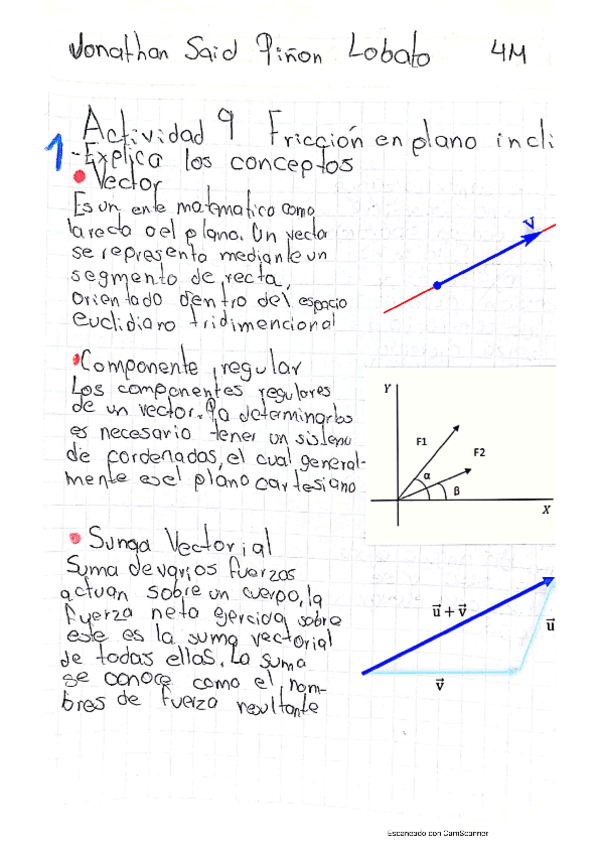 Jonathan Said Piñon Lobato 4M
Actividad 9 Fricción en plano incli
1
-Explica los conceptos
Vector
Es un ente matematico como
la recta o el plano. Un vector
se representa mediante un
segmento de recta,
orientado dentro del espacio
euclidiano tridimencional
V
Componente regular
Los componentes regulares
de un vector. Pa determinarlos
es necesario tener un sistema
de cordenadas, el cual general-
mente es el plano cartesiano
Y
F1
F2
α
β
X
Sunga Vectorial
Suma de varios fuerzas
actuan sobre un cuerpo, la
fuerza neta ejercida sobre
este es la suma vectorial
de todas ellas. La suma
se conoce como el nom-
bres de fuerza resultante
u⃗ + v⃗
u⃗
v⃗
Escaneado con CamScanner